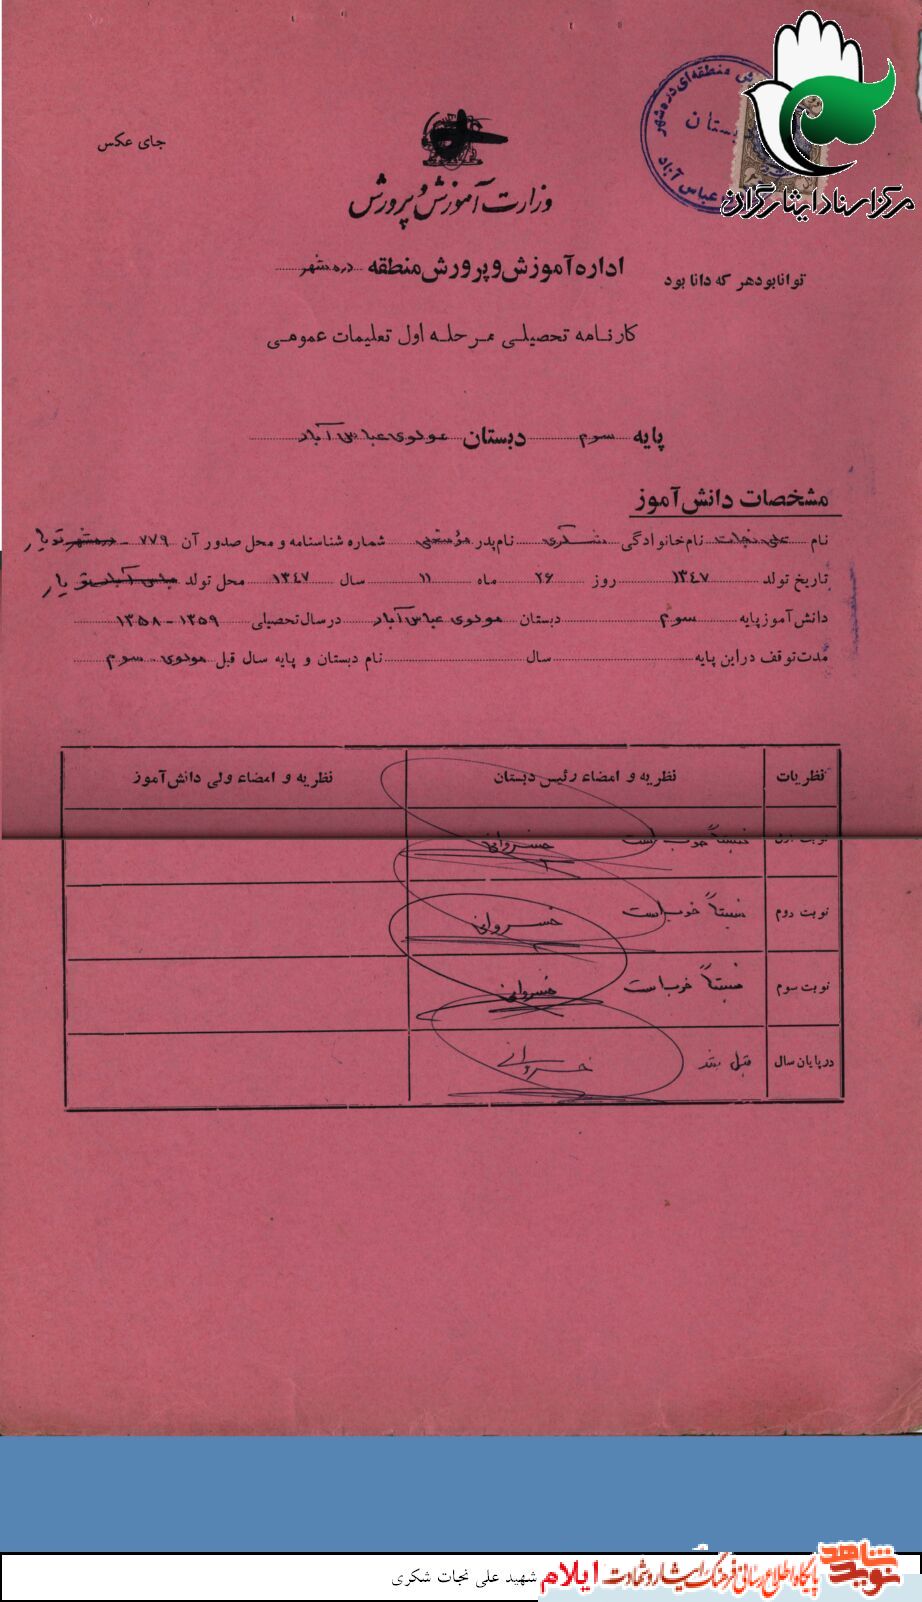 مرکز اسناد ایثارگران
جای عکس
وزارت آموزش و پرورش
اداره آموزش و پرورش منطقه دره شهر
توانا بود هر که دانا بود
کارنامه تحصیلی مرحله اول تعلیمات عمومی
پایه سوم دبستان مولوی عباس آباد
مشخصات دانش آموز
نام علی نجات نام خانوادگی شکری نام پدر شماره شناسنامه و محل صدور آن ۷۷۹ - دره شهر
تاریخ تولد ۱۳۴۷ روز ۲۶ ماه ۱۱ سال ۱۳۴۷ محل تولد عباس آباد
دانش آموز پایه سوم دبستان مولوی عباس آباد در سال تحصیلی ۱۳۵۹-۱۳۵۸
مدت توقف در این پایه سال نام دبستان و پایه سال قبل مولوی سوم
نظریات نظریه و امضاء رئیس دبستان نظریه و امضاء ولی دانش آموز
نوبت اول نسبتاً خوب است خسروانی
نوبت دوم نسبتاً خوب است خسروانی
نوبت سوم نسبتاً خوب است خسروانی
در پایان سال قبل شد خسروانی
نوید شاهد پایگاه اطلاع رسانی فرهنگ ایثار و شهادت ایلام شهید علی نجات شکری